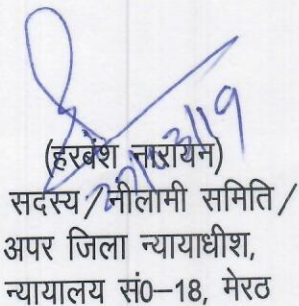 (हरबंश नारायन)
सदस्य/नीलामी समिति/
अपर जिला न्यायाधीश,
न्यायालय सं0–18, मेरठ